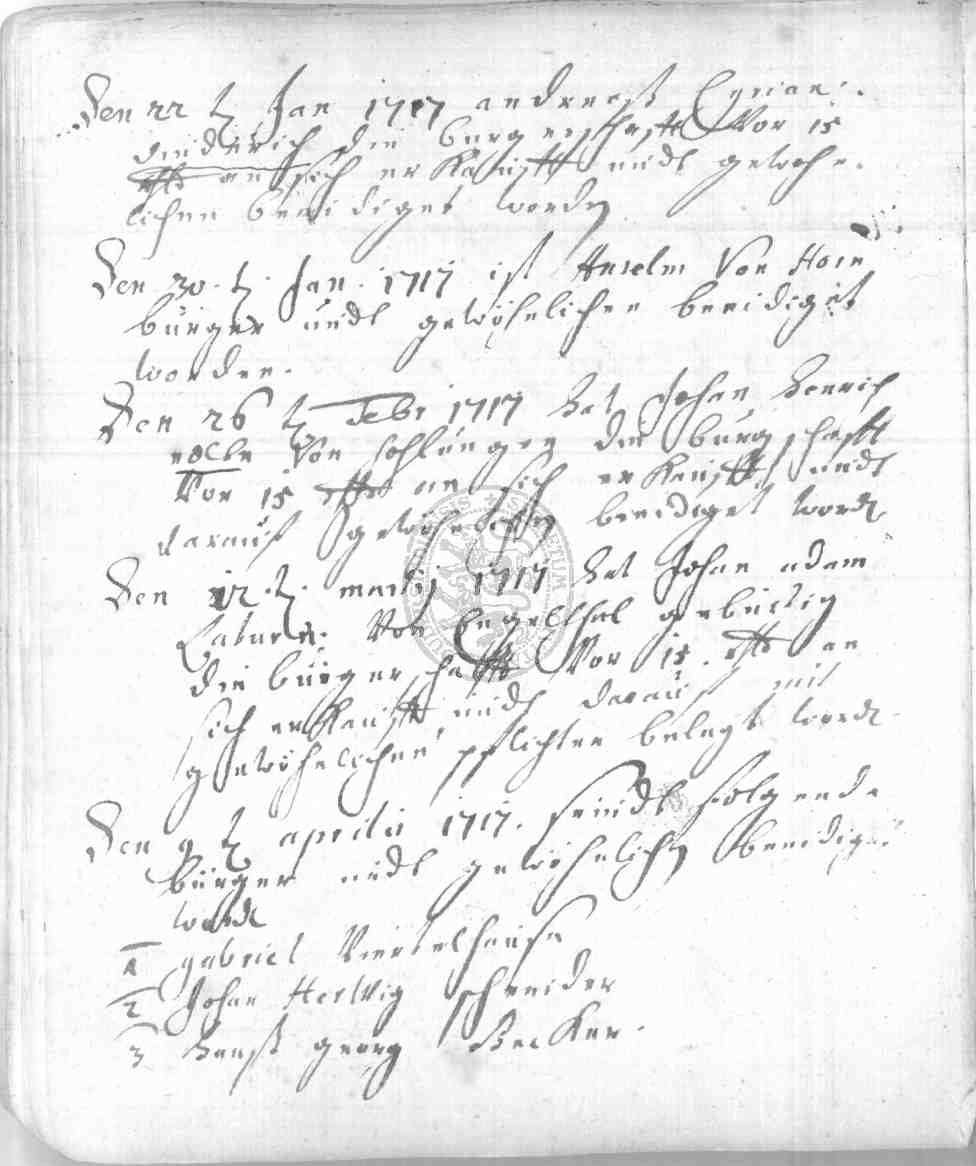 Den 22 t Jan 1717 andreaß Cyrian
diederich die burgerschafft Vor 15
rthr an sich erkaufft undt gewohn-
lichen beeidiget worden
Den 30. t. Jan. 1717 ist Anselm Von Horn
bürger undt gewöhnlichen beeidiget
worden.
Den 26 t Febr 1717 hat Johan Henrich
Von die burgschafft
Vor 15 rthr an sich erkaufft undt
darauf gewöhnlichen beeidiget word
Den 12. t. martij 1717 hat Johan adam
Von Engelthal gebürtig
die burgerschafft Vor 15. rthr an
sich erkaufft undt darauf mit
gewöhnlichen pflichten belegt word
Den 9 t aprilis 1717. seindt folgende
bürger undt gewöhnlichen beeidiget
word
1 gabriel Viertelhausen
2 Johan Hertwig schneider
3 Hanß georg Becker.